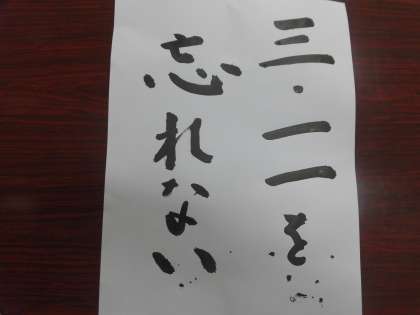 三・一一を
忘れない